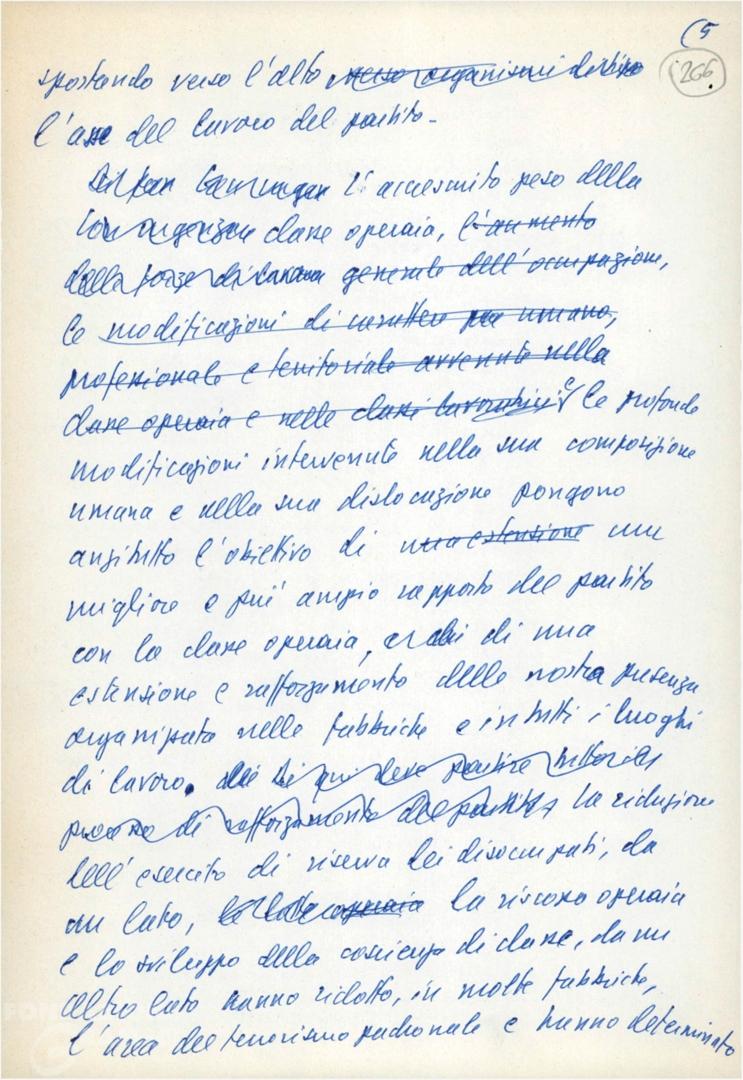 (5
266
spostando verso l'alto verso organismi
l'asse del lavoro del partito -
L'accresciuto peso della
classe operaia, l'aumento
generale dell'occupazione,
le modificazioni di carattere umano,
professionale e territoriale avvenute nella
classe operaia e nelle classi lavoratrici e le profonde
modificazioni intervenute nella sua composizione
umana e nella sua dislocazione pongono
anzitutto l'obiettivo di una estensione un
migliore e più ampio rapporto del partito
con la classe operaia, di una
estensione e rafforzamento della nostra presenza
organizzata nelle fabbriche e in tutti i luoghi
di lavoro. Di qui deve partire
processo di rafforzamento del partito La riduzione
dell'esercito di riserva dei disoccupati, da
un lato, le lotte operaie la riscossa operaia
e lo sviluppo della coscienza di classe, da un
altro lato hanno ridotto, in molte fabbriche,
l'area del terrorismo padronale e hanno determinato